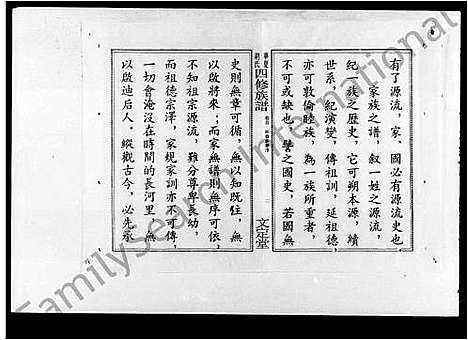 有了源流，家、國必有源流史也
家族之譜，叙一姓之源流，
紀一族之歷史，它可朔本源，續
世系，紀演變，傳祖訓，延祖德
亦可敦倫睦族，為一族所重者，
不可或缺也，譬之國史，若國無
胡氏四修族譜
文定堂
史則無章可循，無以知既往，無
以啟將來；而家無譜則無序可依，
不知祖宗源流，難分尊卑長幼，
而祖德宗澤，家規家訓亦不可傳，
一切會淹沒在時間的長河里，無
以啟迪后人。縱觀古今，必先承
FamilySearch International